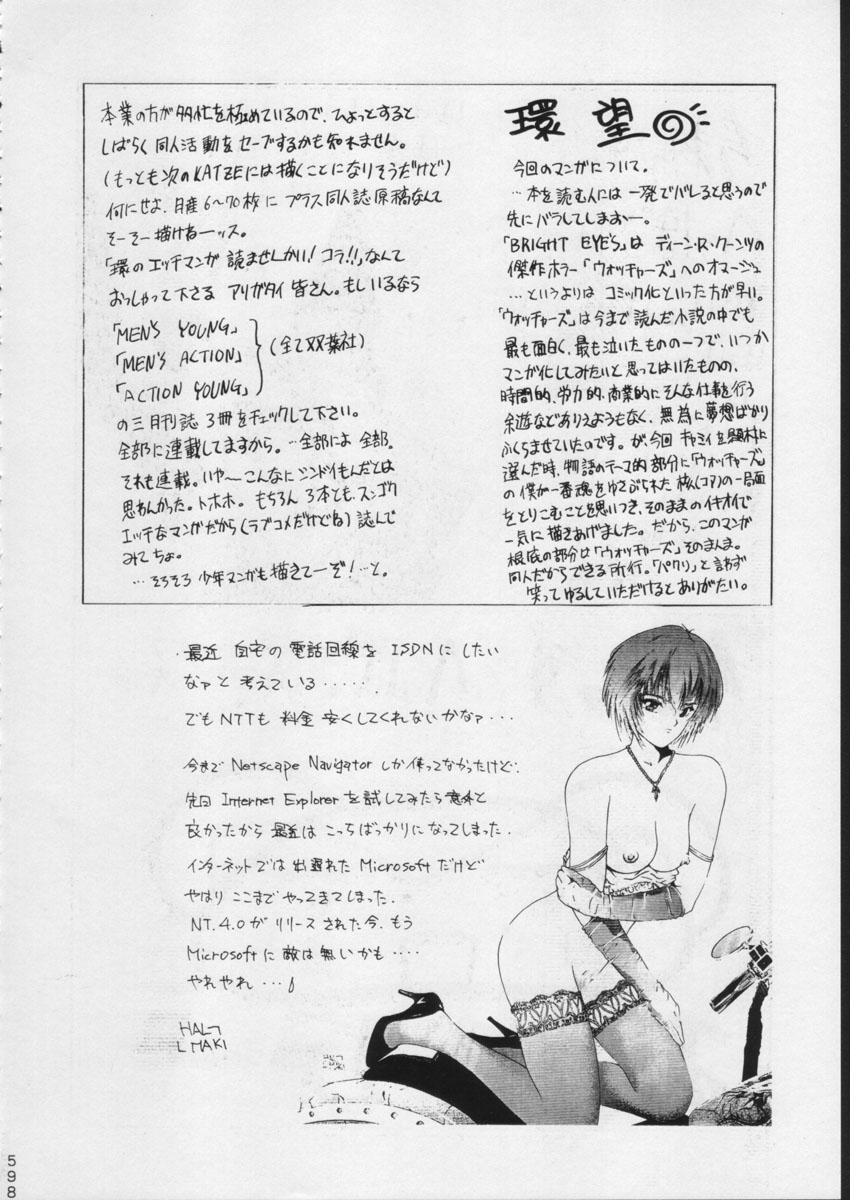 環望
今回のマンガについて。
…本を読む人には一発でバレると思うので
先にバラしてしまおー。
「BRIGHT EYE'S」は ディーン・R・クーンツの
傑作ホラー「ウォッチャーズ」へのオマージュ
…というよりは コミック化といった方が早い。
「ウォッチャーズ」は今まで読んだ小説の中でも
最も面白く、最も泣いたものの一つで、いつか
マンガ化してみたいと思ってはいたものの、
時間的、労力的、商業的にそんな仕事を行う
余遊などありえようもなく、無為に夢想ばかり
ふくらませていたのです。が、今回 キャミィを題材に
選んだ時、物語のテーマ的部分に「ウォッチャーズ」
の僕が一番魂をゆさぶられた核(コア)の一局面
をとりこむことを思いつき、そのままのイキオイで
一気に描きあげました。だから、このマンガ
根底の部分は「ウォッチャーズ」そのまんま。
同人だからできる所行。「パクリ」と言わず
笑ってゆるしていただけるとありがたい。
本業の方が多忙を極めているので、ひょっとすると
しばらく同人活動をセーブするかも知れません。
(もっとも次のKATZEには描くことになりそうだけど)
何にせよ、月産6〜70枚にプラス同人誌原稿なんて
そーそー描けねーッス。
「環のエッチマンガが読ませんかい!コラ!!」なんて
おっしゃって下さる アリガタイ皆さん。もしいるなら
「MEN'S YOUNG」
「MEN'S ACTION」 (全て双葉社)
「ACTION YOUNG」
の三月刊誌3冊をチェックして下さい。
全部に連載してますから。…全部によ 全部。
それも連載。いや〜こんなにシンドイもんだとは
思わんかった。トホホ。もちろん3本とも、スンゴク
エッチなマンガだから(ラブコメだけどね)読んで
みてちょ。
…そろそろ少年マンガも描きてーぞ!…と。
・最近 自宅の電話回線を ISDNにしたい
なァと考えている・・・・・.
でもNTTも 料金 安くしてくれないかなァ・・・
今まで Netscape Navigator しか使ってなかったけど、
先日 Internet Explorerを試してみたら意外と
良かったから 最近は こっちばっかりになってしまった.
インターネットでは 出遅れた Microsoftだけど
やはり ここまで やってきてしまった.
NT.4.0が リリース された今、もう
Microsoftに 敵は無いかも・・・・
やれやれ・・・
HAL
MAKI
598